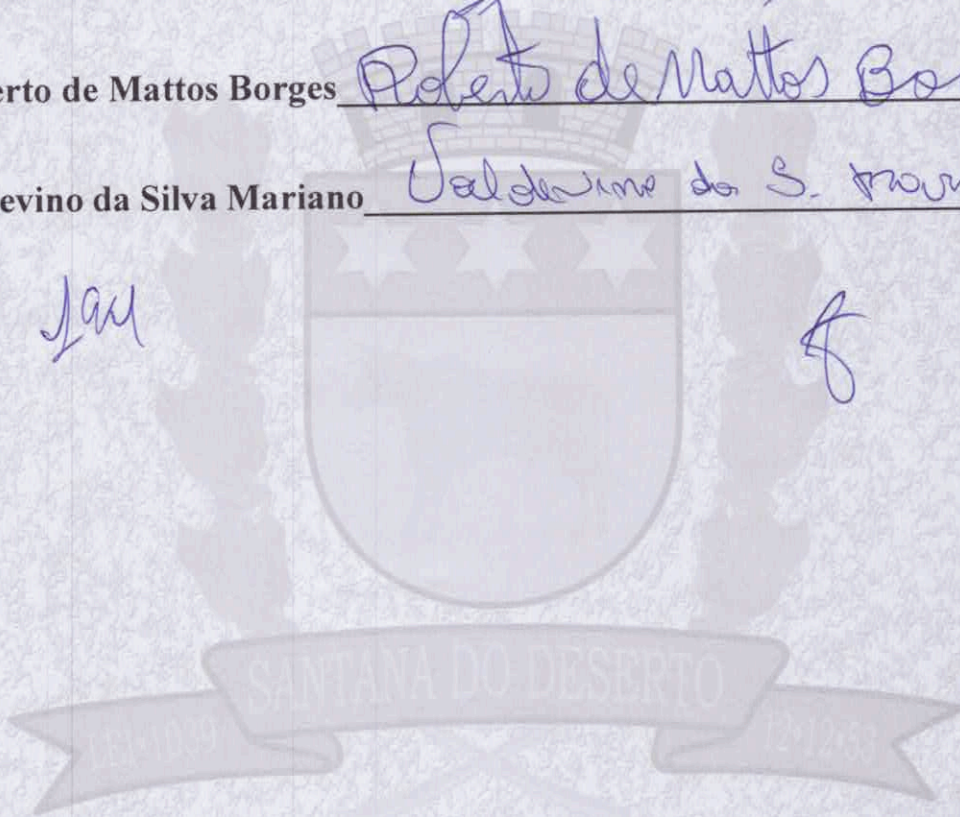 erto de Mattos Borges Roberto de Mattos Bo
evino da Silva Mariano Valdevino da S.
SANTANA DO DESERTO
LEI•1039 12•12•53